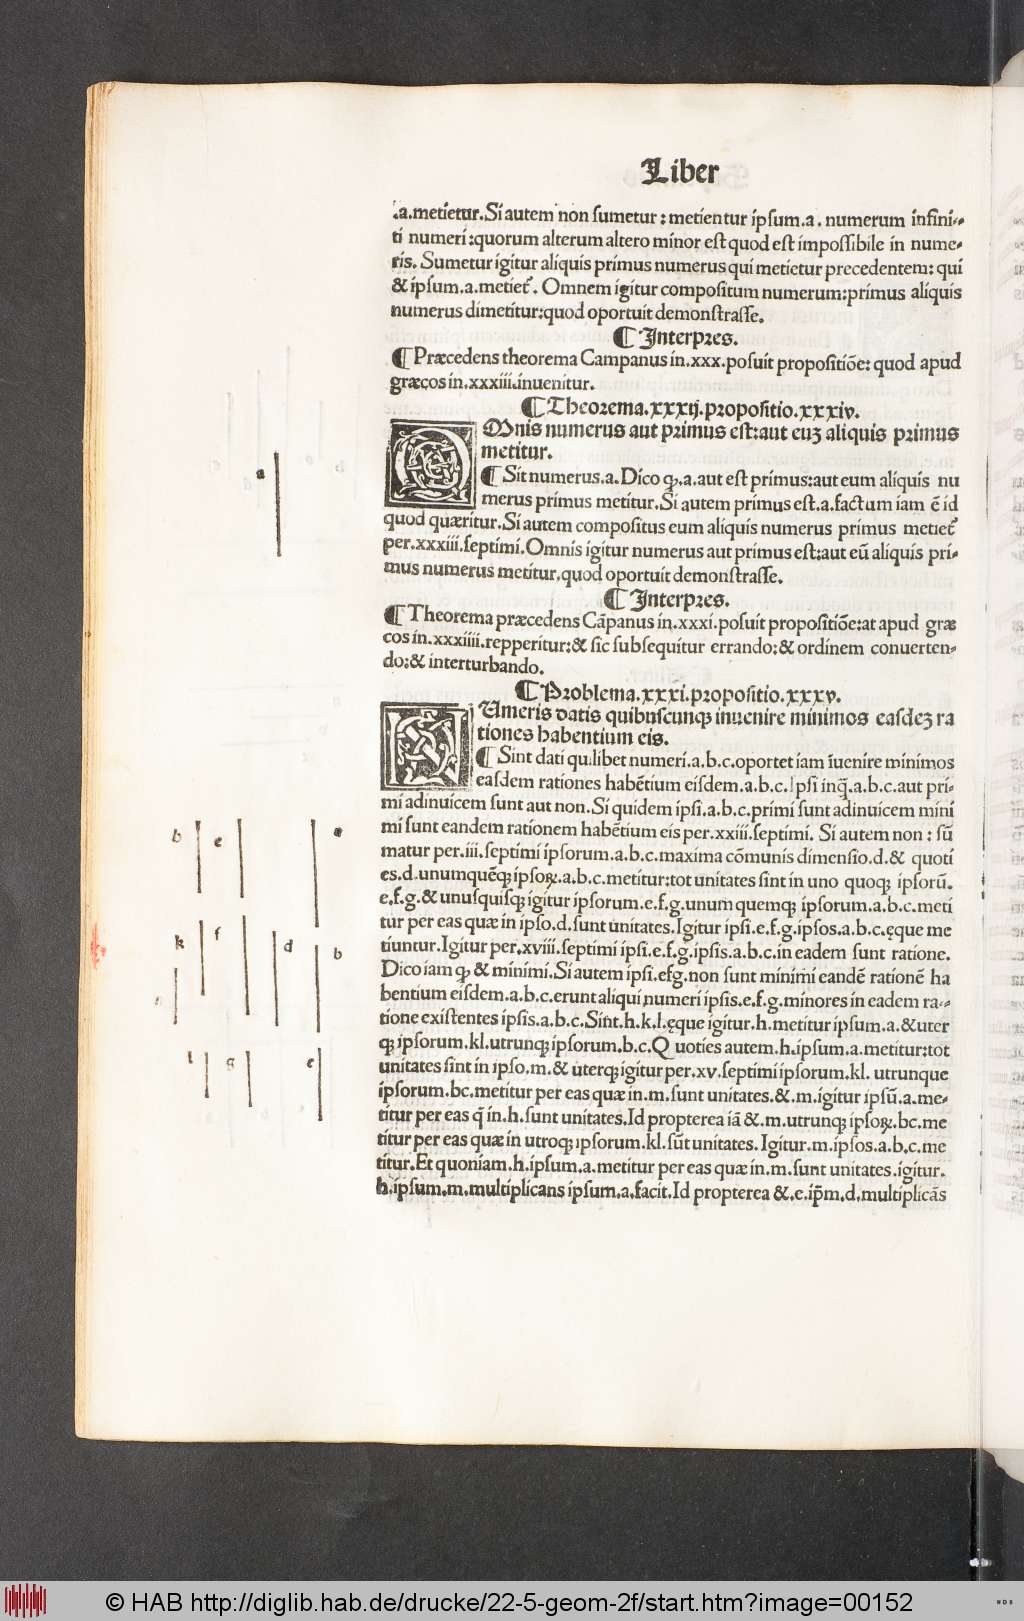 Liber
.a.metietur.Si autem non sumetur : metientur ipsum.a. numerum infini-
ti numeri :quorum alterum altero minor est quod est impossibile in nume-
ris. Sumetur igitur aliquis primus numerus qui metietur precedentem: qui
& ipsum.a.metieť. Omnem igitur compositum numerum:primus aliquis
numerus dimetitur:quod oportuit demonstrasse.
¶ Interpres.
¶ Præcedens theorema Campanus in.xxx.posuit propositiōe: quod apud
græcos in.xxxiii.inuenitur.
¶ Theorema.xxxij.propositio.xxxiv.
OMnis numerus aut primus est:aut euʒ aliquis primus
metitur.
¶ Sit numerus.a. Dico ꝙ.a.aut est primus:aut eum aliquis nu
merus primus metitur. Si autem primus est.a.factum iam ē id
quod quæritur. Si autem compositus eum aliquis numerus primus metieť
per.xxxiii.septimi. Omnis igitur numerus aut primus est:aut eū aliquis pri-
mus numerus metitur.quod oportuit demonstrasse.
¶ Interpres.
¶ Theorema præcedens Cāpanus in.xxxi.posuit propositiōe:at apud græ
cos in.xxxiiii.repperitur:& sic subsequitur errando:& ordinem conuerten-
do:& interturbando.
¶ Problema.xxxi.propositio.xxxv.
NUmeris datis quibuscunqꝫ inuenire minimos easdeʒ ra
tiones habentium eis.
¶ Sint dati quilibet numeri.a.b.c.oportet iam īuenire minimos
easdem rationes habētium eisdem.a.b.c.Ipsi inq̄.a.b.c.aut pri-
mi adinuicem sunt aut non. Si quidem ipsi.a.b.c.primi sunt adinuicem mini
mi sunt eandem rationem habētium eis per.xxiii.septimi. Si autem non : sū
matur per.iii.septimi ipsorum.a.b.c.maxima cōmunis dimensio.d.& quoti
es.d.unumquēqꝫ ipsoꝝ.a.b.c.metitur:tot unitates sint in uno quoqꝫ ipsorū.
e.f.g.& unusquisqꝫ igitur ipsorum.e.f.g.unum quemqꝫ ipsorum.a.b.c.meti
tur per eas quæ in ipso.d.sunt unitates. Igitur ipsi.e.f.g.ipsos.a.b.c.ęque me
tiuntur. Igitur per.xviii.septimi ipsi.e.f.g.ipsis.a.b.c.in eadem sunt ratione.
Dico iam ꝙ & minimi. Si autem ipsi.efg.non sunt minimi eandē rationē ha
bentium eisdem.a.b.c.erunt aliqui numeri ipsis.e.f.g.minores in eadem ra-
tione existentes ipsis.a.b.c. Sint.h.k.l.ęque igitur.h.metitur ipsum.a.&uter
qꝫ ipsorum.kl.utrunqꝫ ipsorum.b.c. Quoties autem.h.ipsum.a.metitur:tot
unitates sint in ipso.m.& uterqꝫ igitur per.xv.septimi ipsorum.kl. utrunque
ipsorum.bc.metitur per eas quæ in.m.sunt unitates.&.m.igitur ipsū.a.me-
titur per eas q̄ in.h.sunt unitates. Id propterea iā &.m.utrunqꝫ ipsoꝝ.bc.me
titur per eas quæ in utroqꝫ ipsorum.kl.sūt unitates. Igitur.m.ipsos.a.b.c.me
titur. Et quoniam.h.ipsum.a.metitur per eas quæ in.m.sunt unitates.igitur.
h.ipsum.m.multiplicans ipsum.a.facit. Id propterea &.e.ip̄m.d.multiplicās
a
b e a
k f d b
l g c
© HAB http://diglib.hab.de/drucke/22-5-geom-2f/start.htm?image=00152